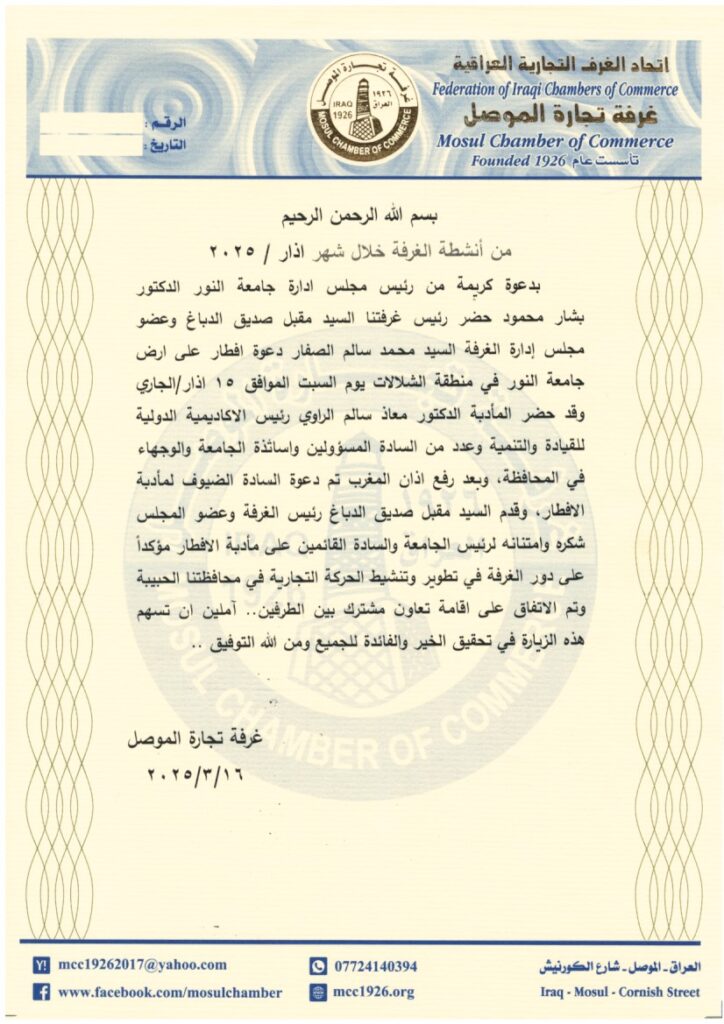 اتحاد الغرف التجارية العراقية
Federation of Iraqi Chambers of Commerce
غرفة تجارة الموصل
Mosul Chamber of Commerce
Founded 1926 تأسست عام
غرفة تجارة الموصل
IRAQ 1926
١٩٢٦ العراق
MOSUL CHAMBER OF COMMERCE
الرقم :
التاريخ :
بسم الله الرحمن الرحيم
من أنشطة الغرفة خلال شهر اذار / ٢٠٢٥
بدعوة كريمة من رئيس مجلس ادارة جامعة النور الدكتور
بشار محمود حضر رئيس غرفتنا السيد مقبل صديق الدباغ وعضو
مجلس إدارة الغرفة السيد محمد سالم الصفار دعوة افطار على ارض
جامعة النور في منطقة الشلالات يوم السبت الموافق ١٥ اذار/الجاري
وقد حضر المأدبة الدكتور معاذ سالم الراوي رئيس الاكاديمية الدولية
للقيادة والتنمية وعدد من السادة المسؤولين واساتذة الجامعة والوجهاء
في المحافظة، وبعد رفع اذان المغرب تم دعوة السادة الضيوف لمأدبة
الافطار، وقدم السيد مقبل صديق الدباغ رئيس الغرفة وعضو المجلس
شكره وامتنانه لرئيس الجامعة والسادة القائمين على مأدبة الافطار مؤكداً
على دور الغرفة في تطوير وتنشيط الحركة التجارية في محافظتنا الحبيبة
وتم الاتفاق على اقامة تعاون مشترك بين الطرفين.. آملين ان تسهم
هذه الزيارة في تحقيق الخير والفائدة للجميع ومن الله التوفيق ..
غرفة تجارة الموصل
٢٠٢٥/٣/١٦
MOSUL CHAMBER OF COMMERCE
mcc19262017@yahoo.com
07724140394
العراق - الموصل - شارع الكورنيش
www.facebook.com/mosulchamber
mcc1926.org
Iraq - Mosul - Cornish Street